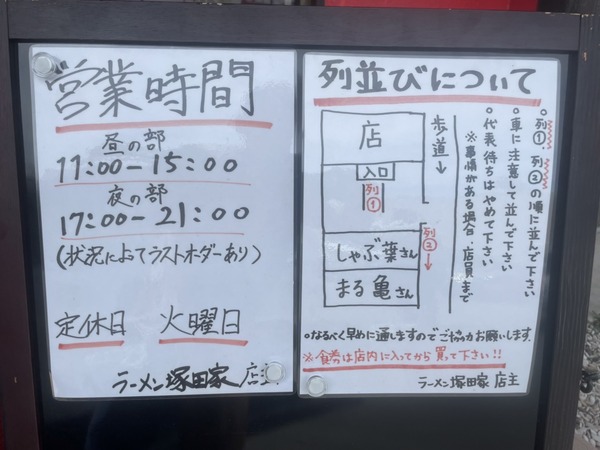 営業時間
昼の部
11:00-15:00
夜の部
17:00-21:00
(状況によってラストオーダーあり)
定休日 火曜日
ラーメン塚田家 店主
列並びについて
店
入口
列①
歩道↓
列②→
しゃぶ葉さん
まる亀さん
○列①列②の順に並んで下さい
○車に注意して並んで下さい
○代表待ちはやめて下さい
※事情がある場合、店員まで
○なるべく早めに通しますのでご協力お願いします。
※食券は店内に入ってから買って下さい!!
ラーメン塚田家 店主